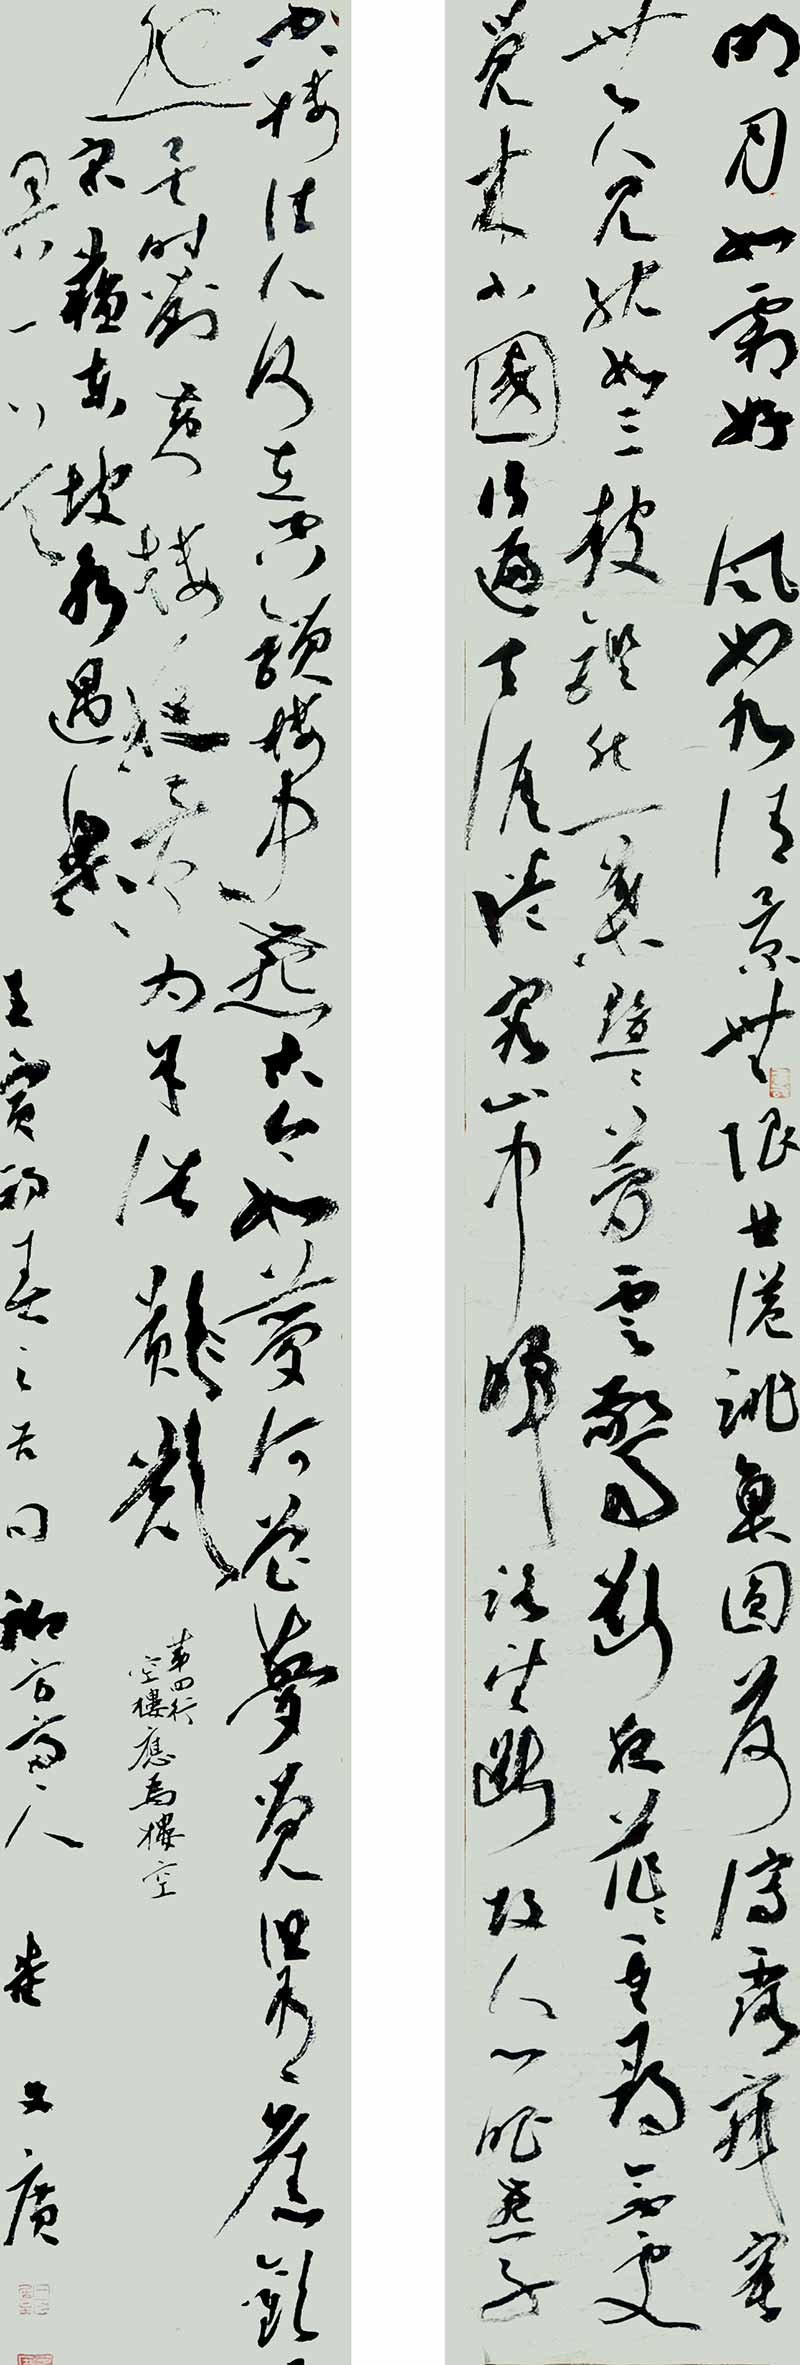 明月如霜好風如水清景無限曲港跳魚圓荷瀉露寂寞
無人見紞如三鼓鏗然一葉黯黯夢雲驚斷夜茫茫重尋無處
覺來小園行遍天涯倦客山中歸路望斷故人心眼燕子
空樓佳人何在空鎖樓中燕古今如夢何曾夢覺但有舊歡
怨異時對黃樓夜景為余浩歎
第四行
空樓應為樓空
宋蘇東坡永遇樂
壬寅初春之吉